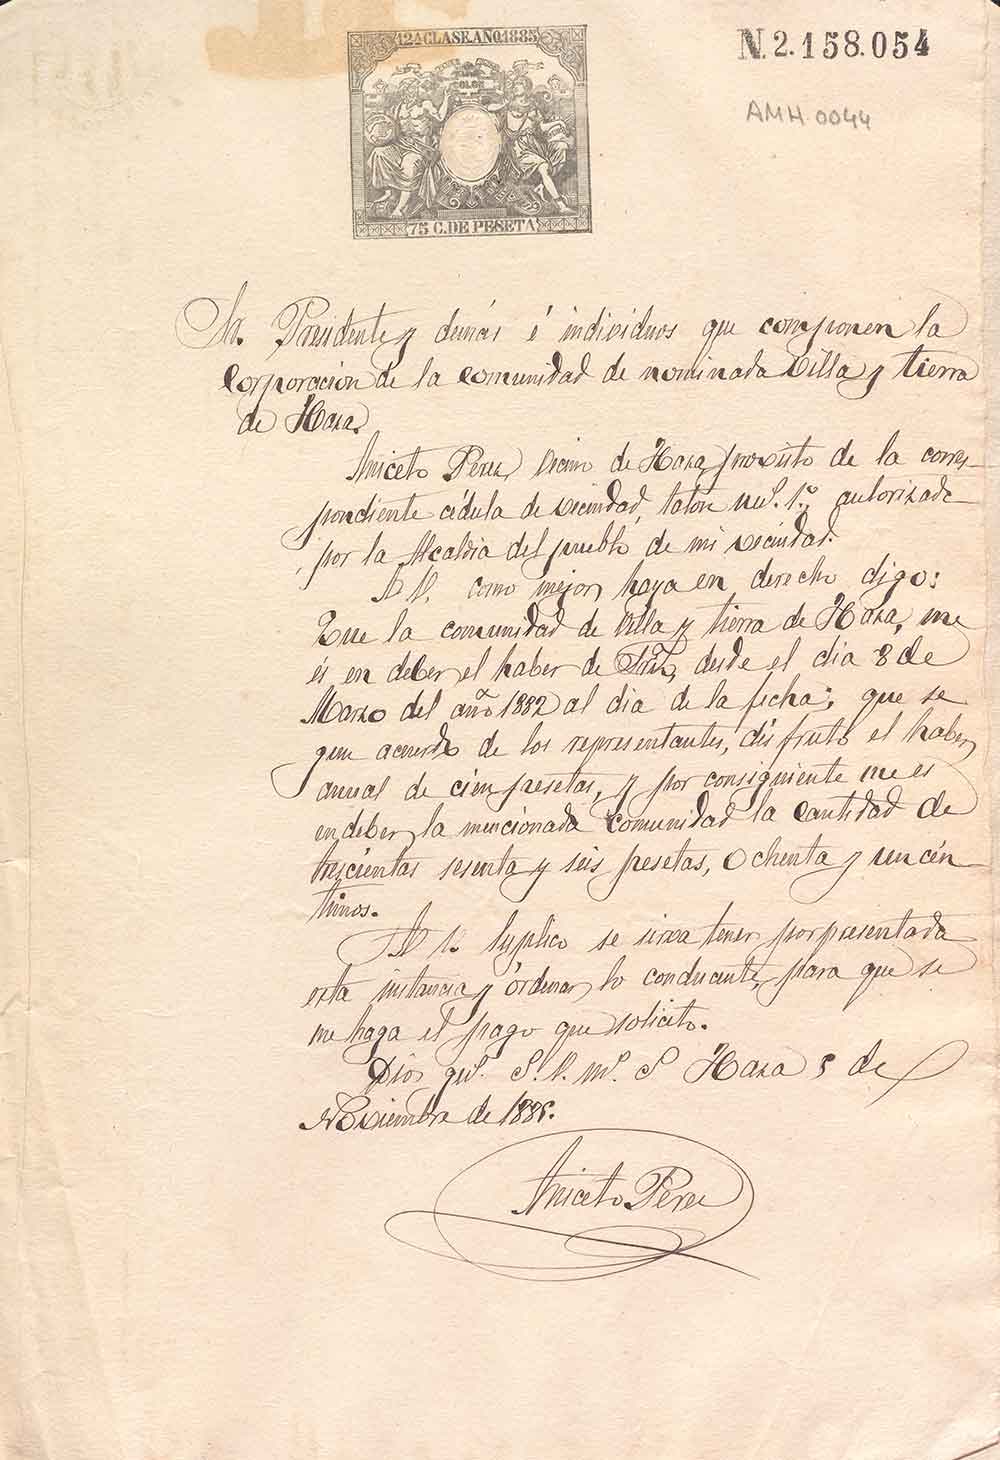 12ª CLASE. AÑO 1885
75 C. DE PESETA
N. 2.158.054
AMH 0044
Sr. Presidente y demás é individuos que componen la
Corporación de la comunidad de nominada Villa y tierra
de Haza.
Aniceto Perez, vecino de Haza, provisto de la corres-
pondiente cédula de vecindad, talón nu. 1.º, autorizada
por la Alcaldia del pueblo de mi vecindad.
A V. como mejor haya en derecho digo:
Que la comunidad de Villa y tierra de Haza, me
és en deber el haber de desde el dia 8 de
Marzo del año 1882 al dia de la fecha; que se
gun acuerdo de los representantes, disfruto el haber
anual de cien pesetas, y por consiguiente me es
en deber la mencionada comunidad la cantidad de
trescientas sesenta y seis pesetas, ochenta y un cén-
timos.
A V. Suplico se sirva tener por presentada
esta instancia y órdenar lo conducente, para que se
me haga el pago que solicito.
Dios gu. S. V. m. S Haza 5 de
Noviembre de 1885.
Aniceto Perez